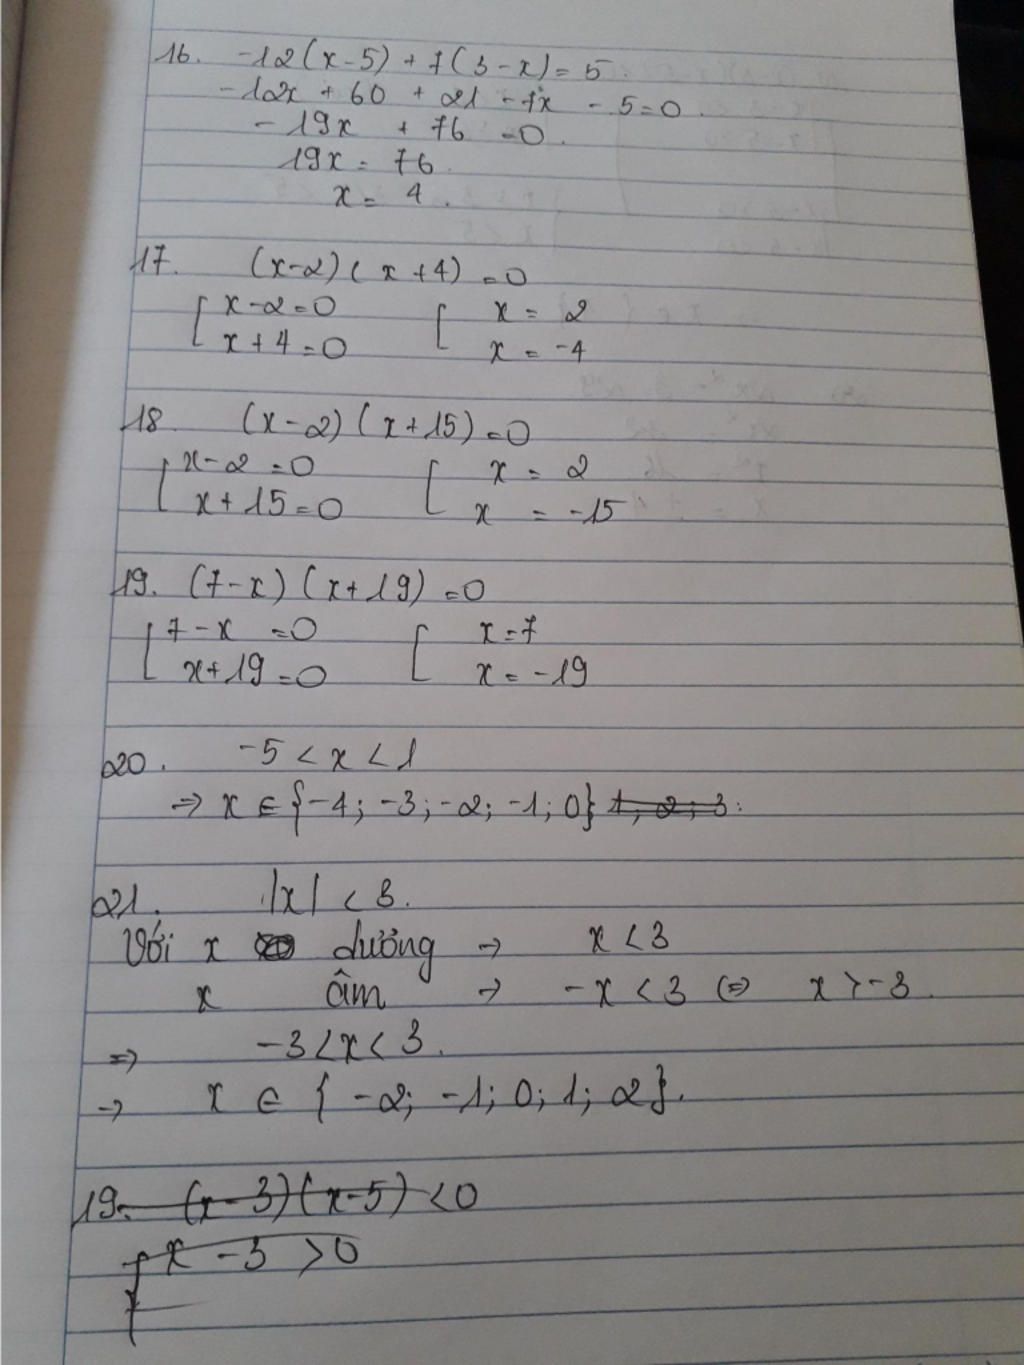 16. -12(x-5) + 7(3-x) = 5.
-12x + 60 + 21 - 7x - 5 = 0.
- 19x + 76 = 0.
19x = 76.
x = 4.
17. (x-2)(x+4) = 0
[ x-2=0 [ x = 2
x+4=0 x = -4
18 (x-2)(x+15) = 0
[ x-2 = 0 [ x = 2
x+15=0 x = -15
19. (7-x)(x+19) = 0
[ 7-x = 0 [ x=7
x+19=0 x = -19
20. -5 < x < 1
⇒ x ∈ {-4; -3; -2; -1; 0} 1; 2; 3.
21. |x| < 3.
Với x dương → x < 3
x âm → -x < 3 ⇔ x > -3.
⇒ -3 < x < 3.
→ x ∈ { -2; -1; 0; 1; 2}.
19. (x-3)(x-5) < 0
x - 3 > 0